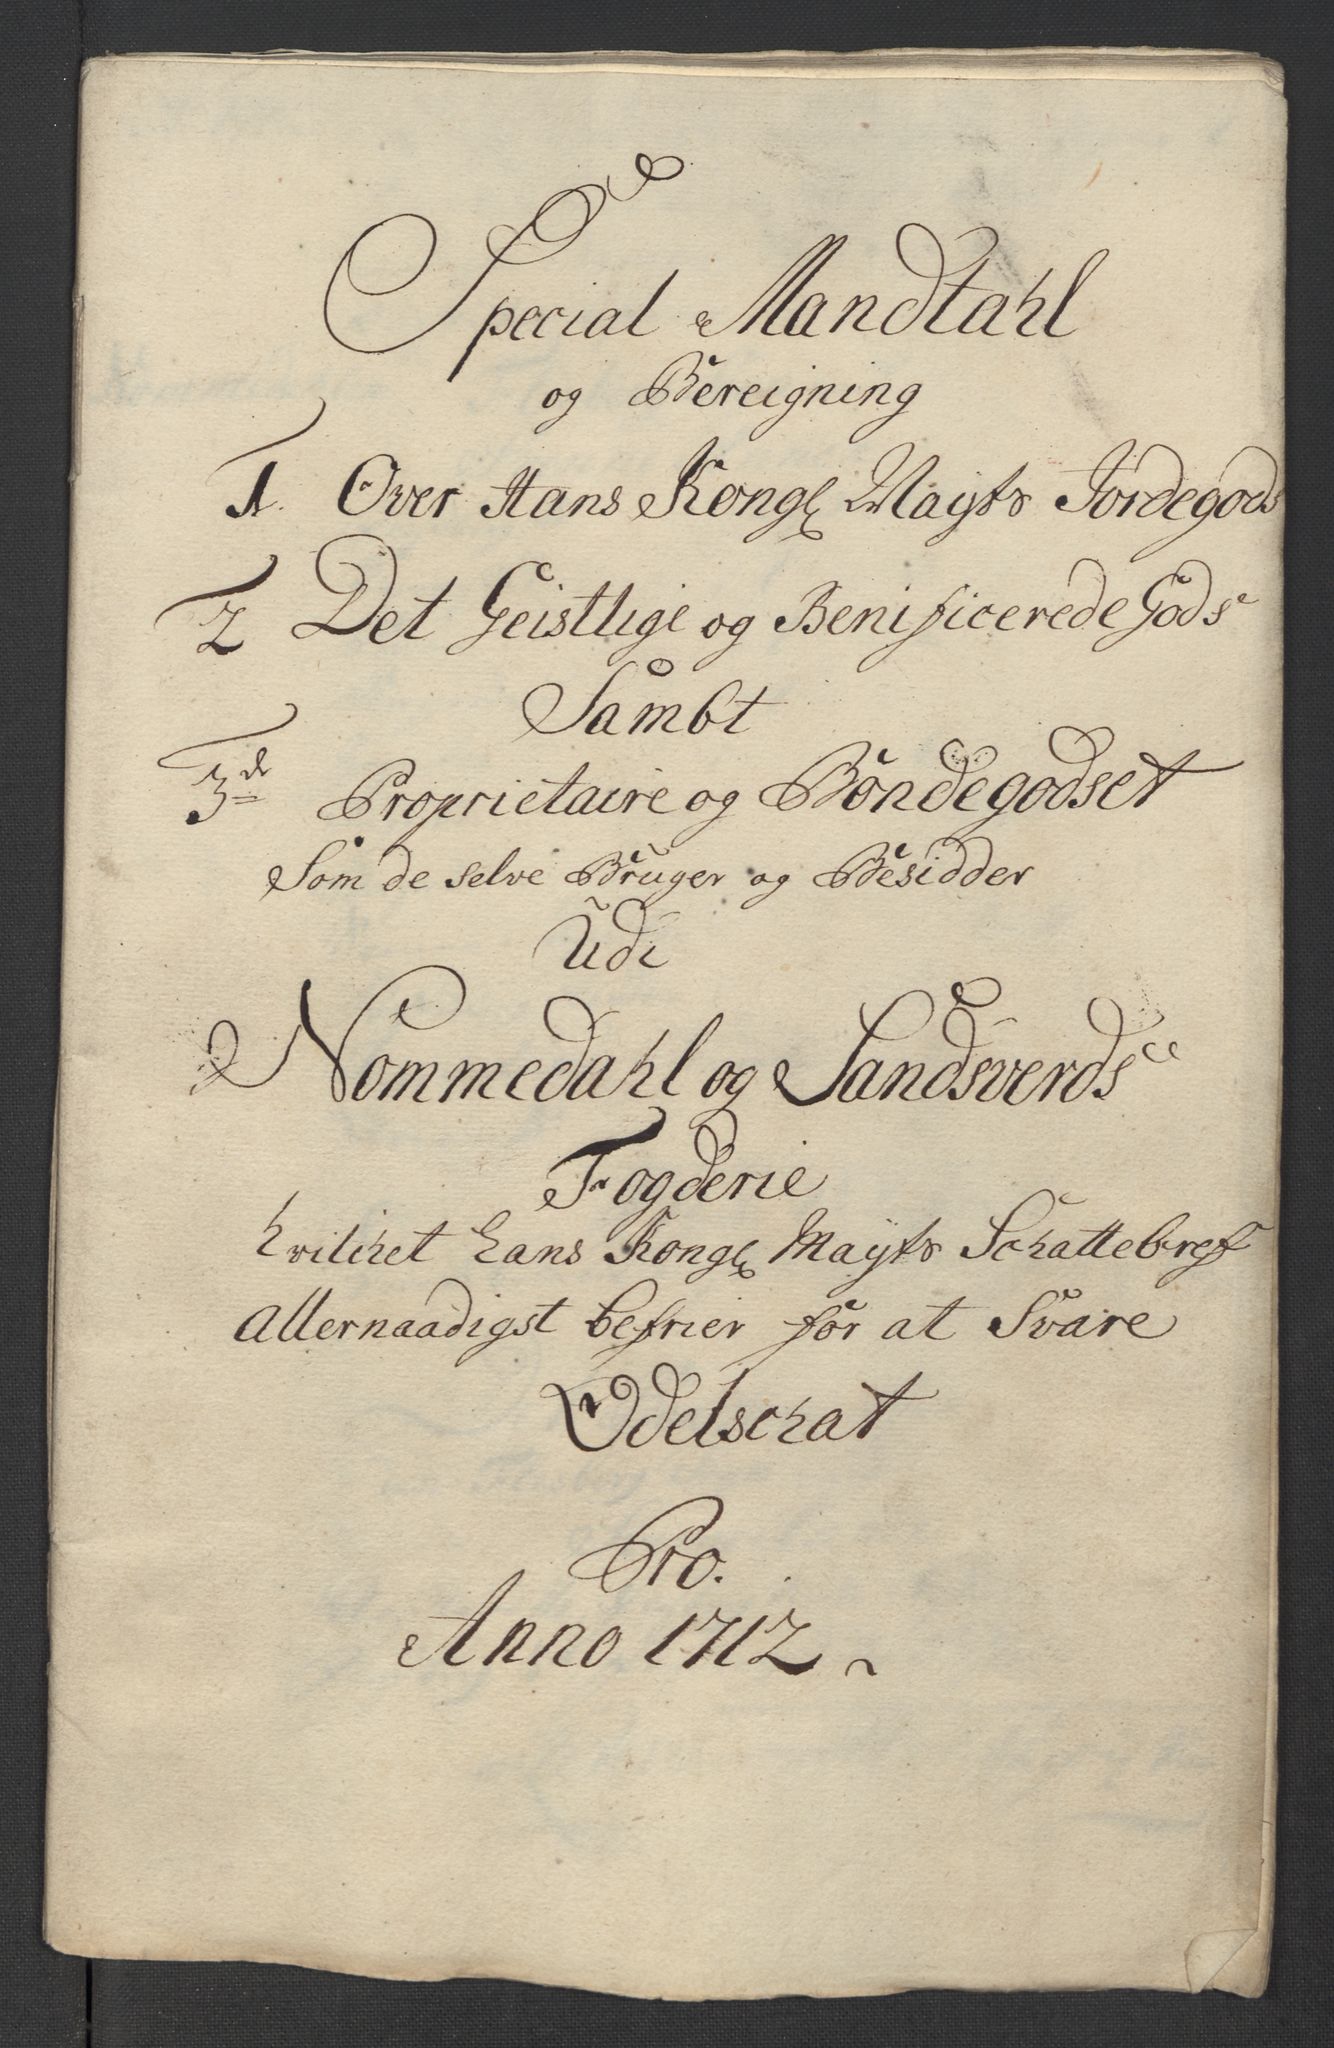 Special Mandtahl
og Bereigning
1. Over Hans Kongl Mayts Jordegods
2 Det Geistlige og Benificerede Gods
Sambt
3de Proprietaire og Bondegodset
Som de selve Bruger og Besidder
Udi
Nommedahl og Sandsverds
Fogderie
hvilchet hans Kongl Mayts Schattebref
allernaadigst befrier for at Svare
Odelschat
Pro.
Anno 1712